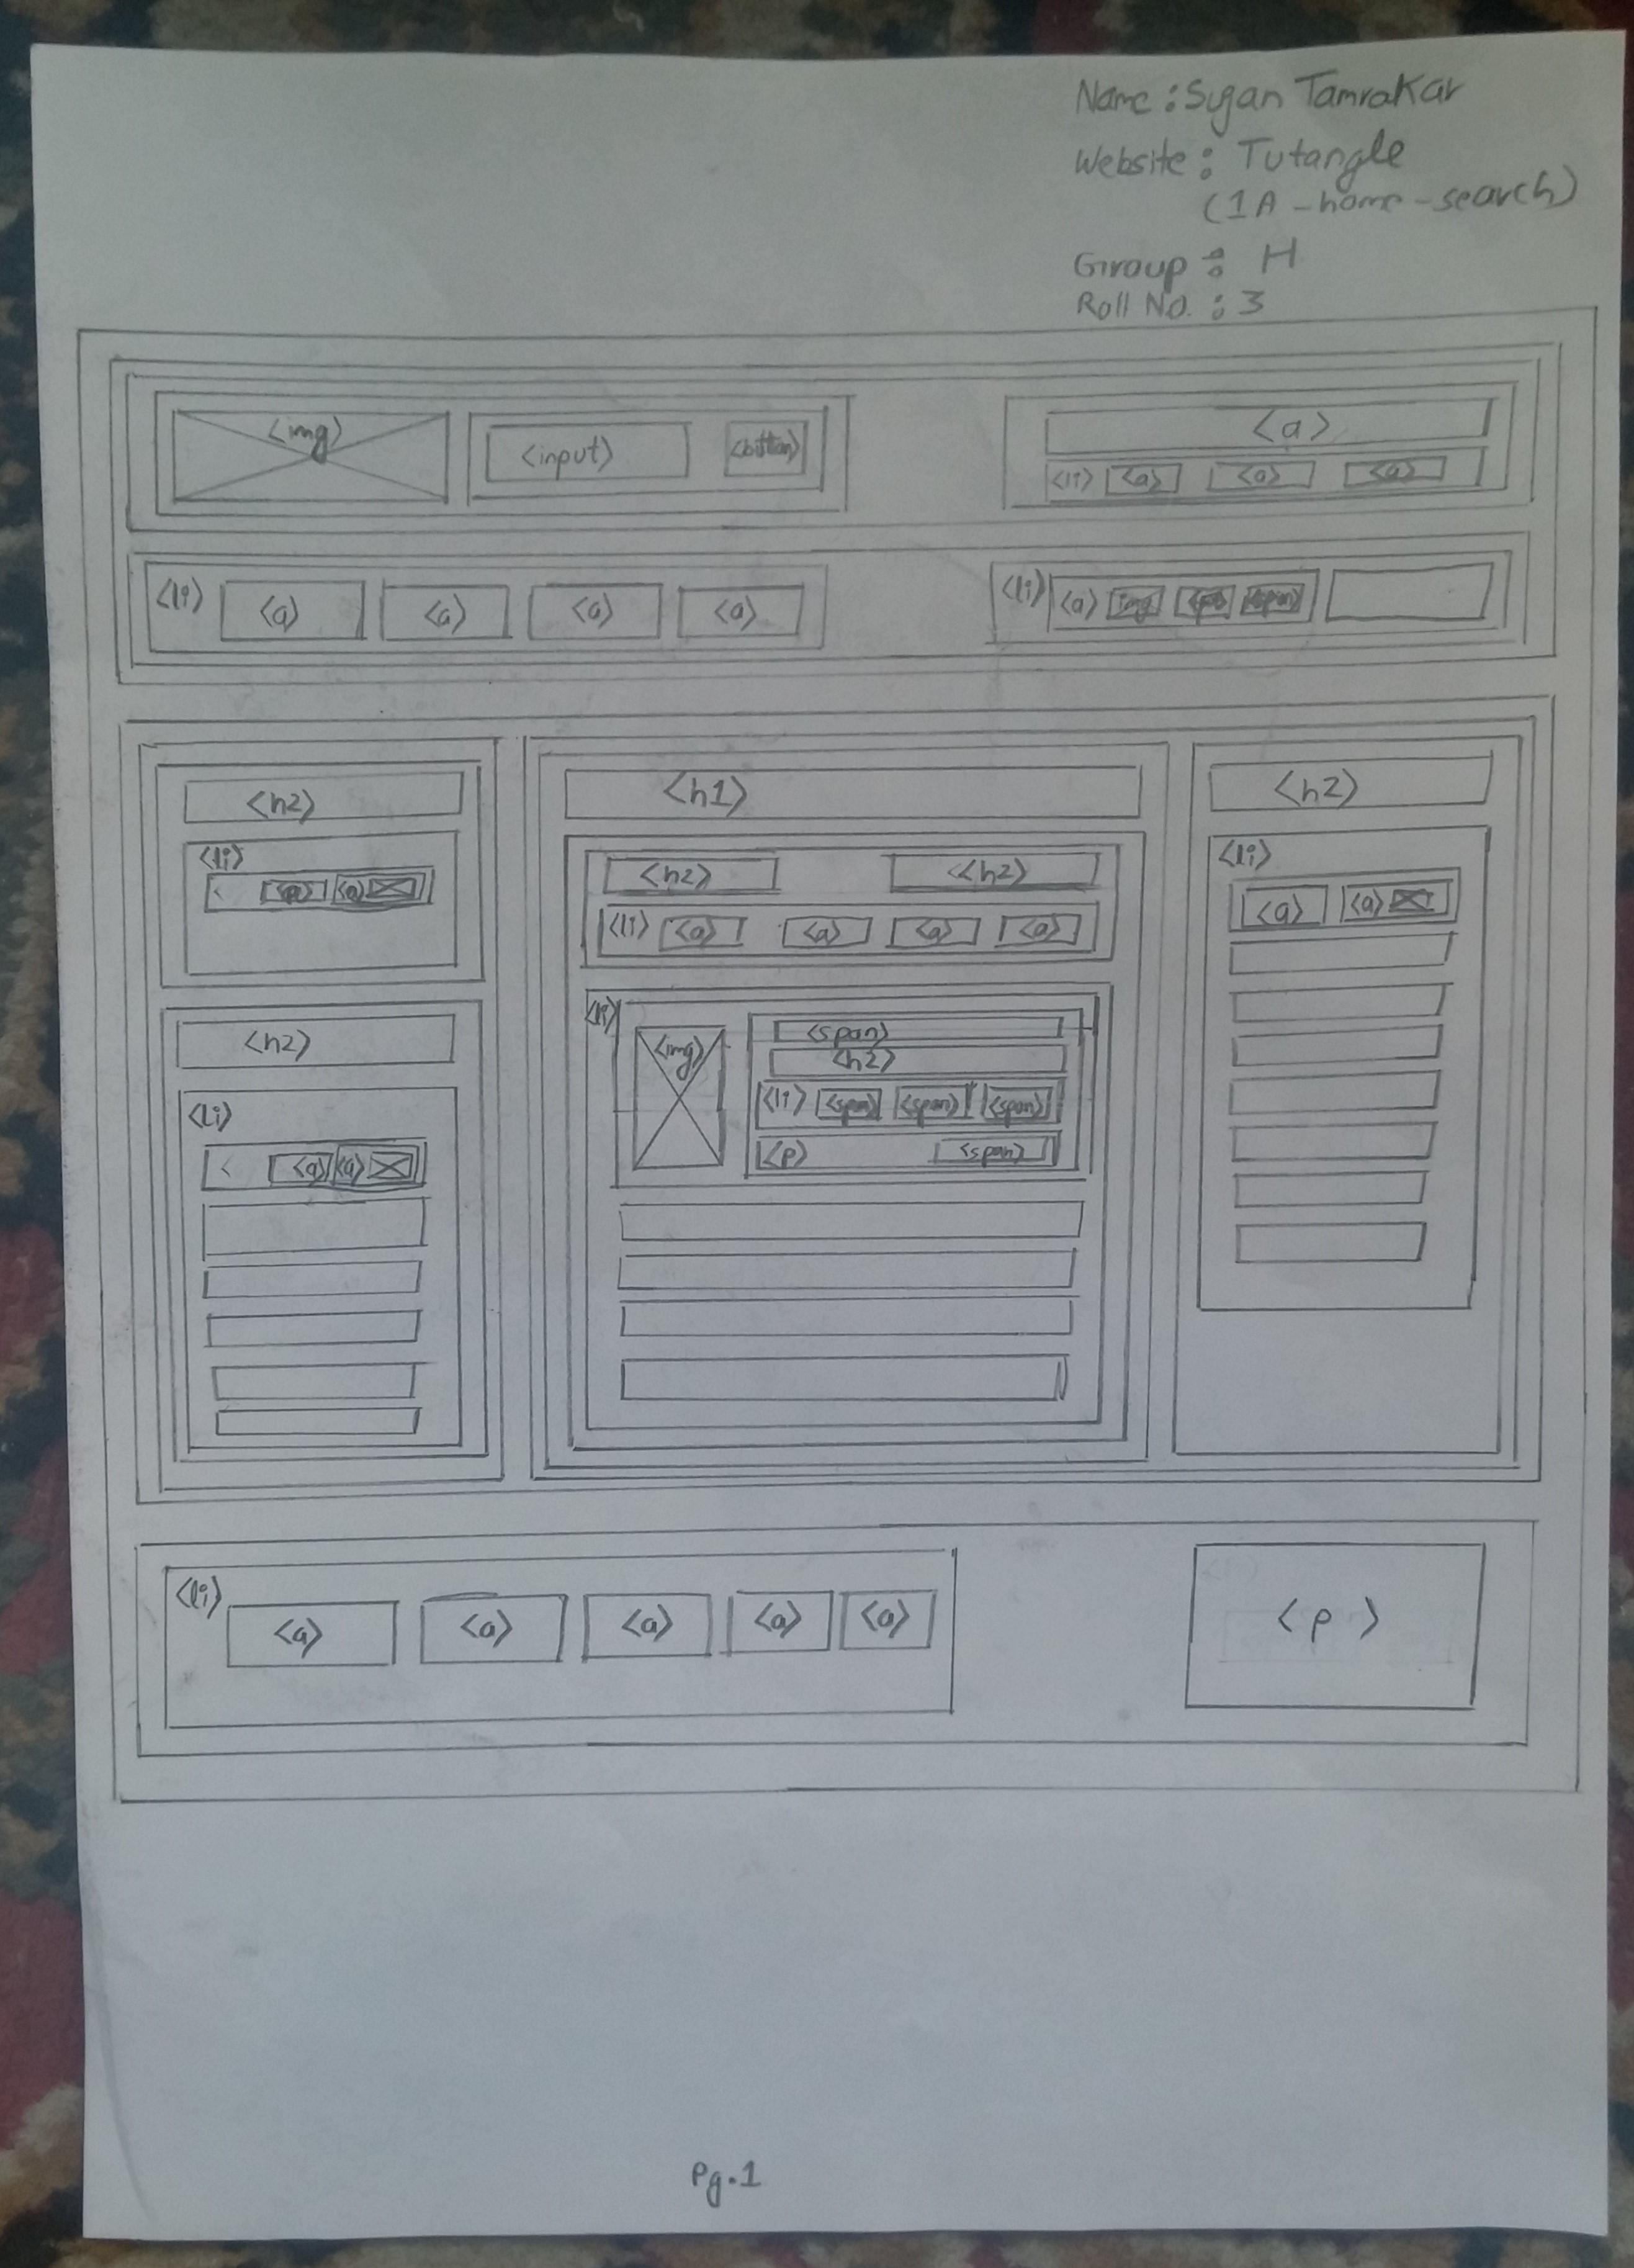 Name : Sujan Tamrakar
Website : Tutangle
(1A - home - search)
Group : H
Roll No. : 3
<img> <input> <button> <a>
<li> <a> <a> <a>
<li> <a> <a> <a> <a> <li> <a> img <span>
<h2> <h1> <h2>
<li> <h2> <<h2> <li>
< <a> <a> <a> <a>
<li> <a> <a> <a> <a>
<li> <img> <span>
<h2> <h2>
<li> <li> <span> <span> <span>
< <a> <a> <p> <span>
<li> <a> <a> <a> <a> <a> <p>
Pg.1